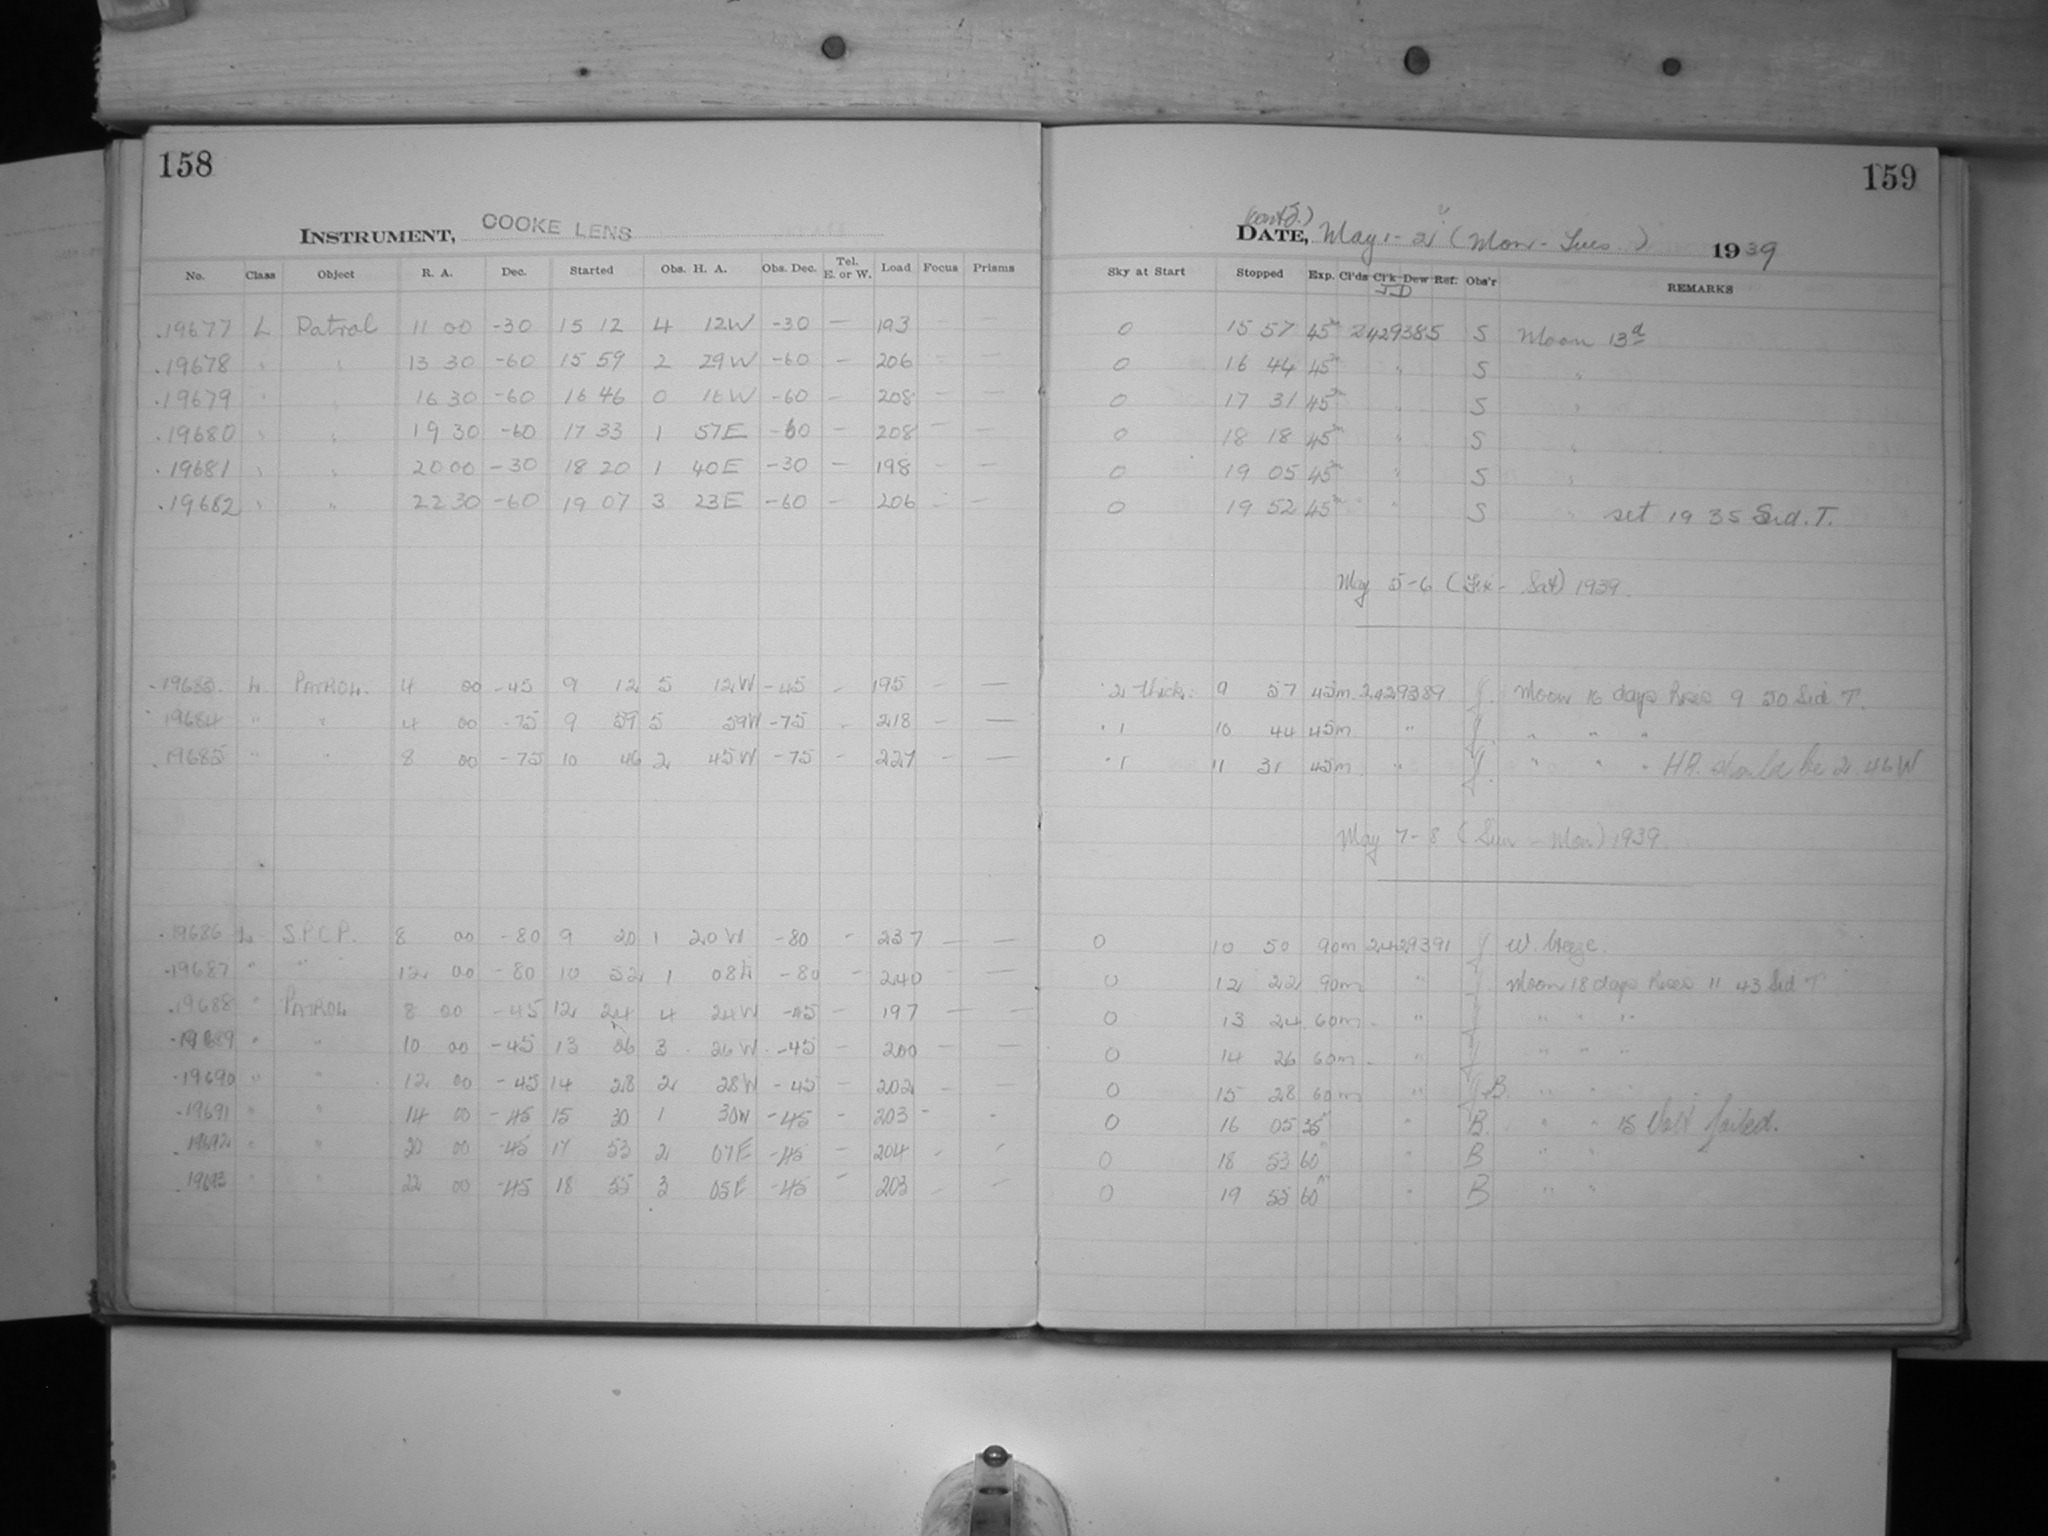 158
INSTRUMENT, COOKE LENS
No. Class Object R. A. Dec. Started Obs. H. A. Obs. Dec. Tel. E. or W. Load Focus Prisms
.19677 L Patrol 11 00 -30 15 12 4 12W -30 — 193 — —
.19678 " " 13 30 -60 15 59 2 29W -60 — 206 — —
.19679 " " 16 30 -60 16 46 0 16W -60 — 208 — —
.19680 " " 19 30 -60 17 33 1 57E -60 — 208 — —
.19681 " " 20 00 -30 18 20 1 40E -30 — 198 — —
.19682 " " 22 30 -60 19 07 3 23E -60 — 206 — —
.19683. L. PATROL. 4 00 -45 9 12 5 12W -45 - 195 — —
19684 " " 4 00 -75 9 59 5 59W -75 - 218 — —
.19685 " " 8 00 -75 10 46 2 45W -75 — 227 — —
.19686 L S.P.C.P. 8 00 -80 9 20 1 20W -80 - 237 — —
.19687 " " 12 00 -80 10 52 1 08E -80 - 240 — —
.19688 " PATROL 8 00 -45 12 24 4 24W -45 — 197 — —
.19689 " " 10 00 -45 13 26 3 26W -45 — 200 — —
.19690 " " 12 00 -45 14 28 2 28W -45 — 202 — —
.19691 " " 14 00 -45 15 30 1 30W -45 - 203 - -
.19692 " " 20 00 -45 17 53 2 07E -45 - 204 - -
.19693 " " 22 00 -45 18 55 3 05E -45 - 203 - -
159
(contd.)
DATE, May 1-2 (Mon - Tues) 1939
Sky at Start Stopped Exp. Cl'ds Cl'k Dew Ref. Obs'r REMARKS
JD
0 15 57 45m 2429385 S Moon 13d
0 16 44 45m " S "
0 17 31 45m " S "
0 18 18 45m " S "
0 19 05 45m " S "
0 19 52 45m " S " set 19 35 Sid. T.
May 5-6 (Fri - Sat) 1939.
2 thick. 9 57 45m. 2429389 J. Moon 16 days Rises 9 50 Sid T.
1 10 44 45m " J. " " "
1 11 31 45m. " J. " " " HA. should be 2 46W
May 7-8 (Sun - Mon) 1939.
0 10 50 90m 2429391 J W. breeze.
0 12 22 90m " J Moon 18 days Rises 11 43 Sid T
0 13 24 60m. " J " " "
0 14 26 60m. " J " " "
0 15 28 60m " J+B. " "
0 16 05 35m " B. " " 15 Volt failed.
0 18 53 60m " B " "
0 19 55 60m " B " "